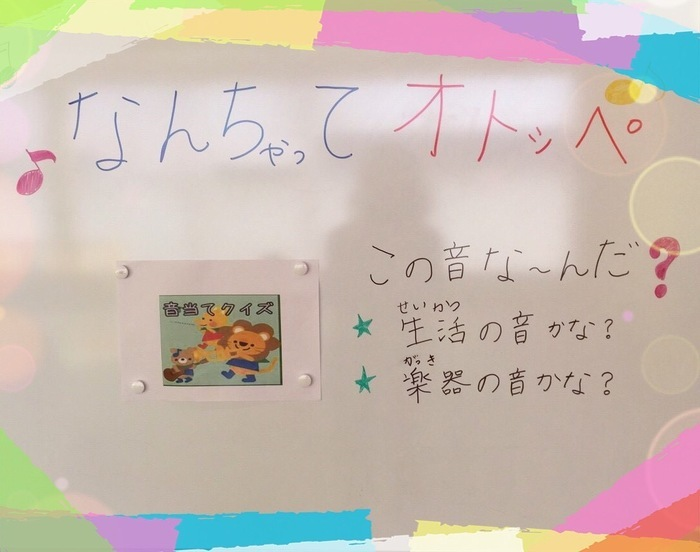 なんちゃって オトッペ
音当てクイズ
この音な～んだ?
せいかつ
★生活の音かな?
がっき
★楽器の音かな?